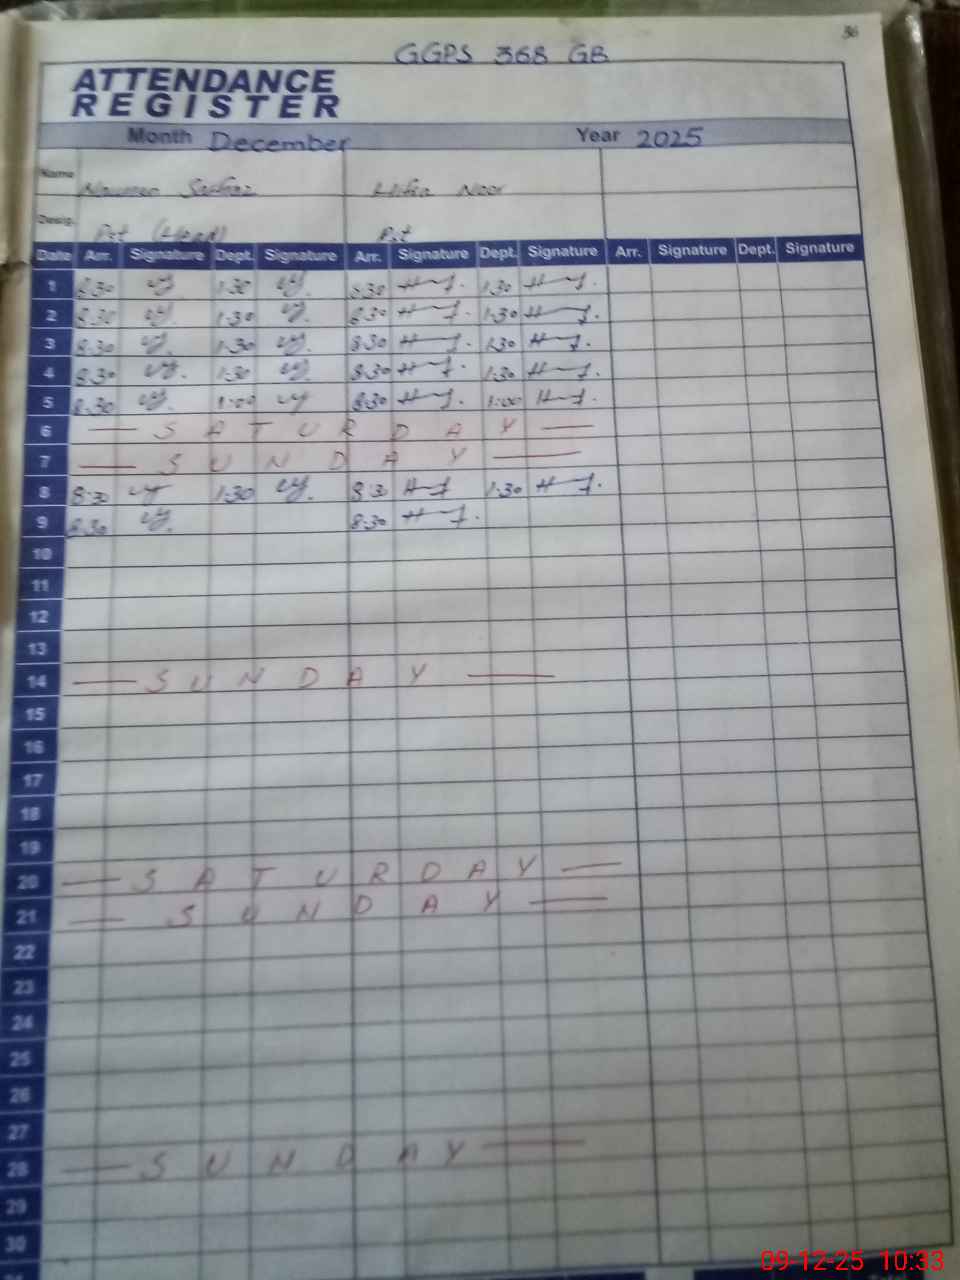 36
GGPS 368 GB
ATTENDANCE
REGISTER
Month December Year 2025
Name Noor
Desig. Pst (Head) Pst
Date Arr. Signature Dept. Signature Arr. Signature Dept. Signature Arr. Signature Dept. Signature
1 8:30 1:30 8:30 1:30
2 8:30 1:30 8:30 1:30
3 8:30 1:30 8:30 1:30
4 8:30 1:30 8:30 1:30
5 8:30 1:00 8:30 1:00
6 — SATURDAY —
7 — SUNDAY —
8 8:30 1:30 8:30 1:30
9 8:30 8:30
10
11
12
13
14 — SUNDAY —
15
16
17
18
19
20 — SATURDAY —
21 — SUNDAY —
22
23
24
25
26
27
28 — SUNDAY —
29
30
09-12-25 10:33